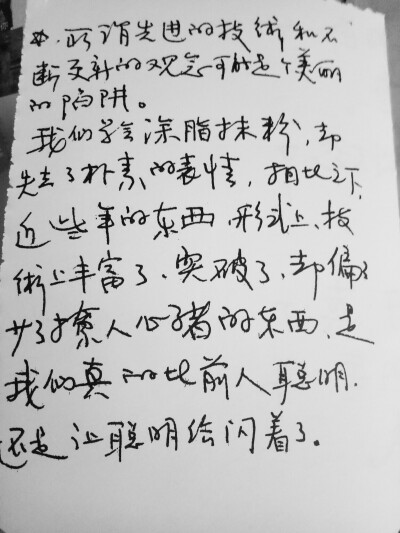 所谓先进的技術和不
断更新的观念可能是个美丽
的陷阱。
我们学会涂脂抹粉，却
失去了朴素的表情，相比之下，
近些年的东西，形式上、技
術上丰富了、突破了，却偏偏
少了撩人心绪的东西，是
我们真的比前人聪明，
还是让聪明给闪着了。